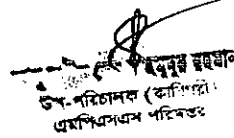 রহমান
উপ-পরিচালক (কারিগরী)
এমপিএসএস পরিদপ্তর